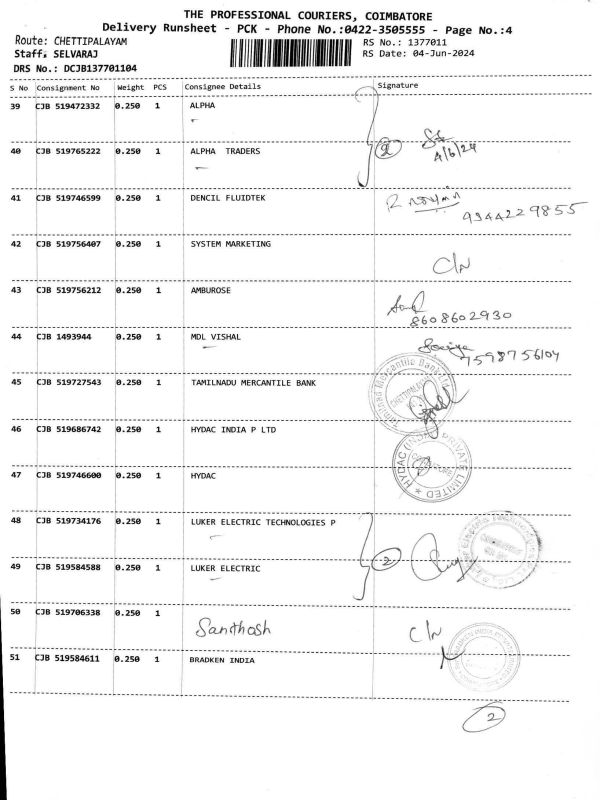 THE PROFESSIONAL COURIERS, COIMBATORE
Delivery Runsheet - PCK - Phone No.:0422-3505555 - Page No.:4
Route: CHETTIPALAYAM RS No.: 1377011
Staff. SELVARAJ RS Date: 04-Jun-2024
DRS No.: DCJB137701104
S No Consignment No Weight PCS Consignee Details Signature
39 CJB 519472332 0.250 1 ALPHA
40 CJB 519765222 0.250 1 ALPHA TRADERS 2 4/6/24
41 CJB 519746599 0.250 1 DENCIL FLUIDTEK 9344229855
42 CJB 519756407 0.250 1 SYSTEM MARKETING C/N
43 CJB 519756212 0.250 1 AMBUROSE 8608602930
44 CJB 1493944 0.250 1 MDL VISHAL 7598756104
45 CJB 519727543 0.250 1 TAMILNADU MERCANTILE BANK
46 CJB 519686742 0.250 1 HYDAC INDIA P LTD
47 CJB 519746600 0.250 1 HYDAC HYDAC (INDIA) PRIVATE LIMITED
48 CJB 519734176 0.250 1 LUKER ELECTRIC TECHNOLOGIES P
49 CJB 519584588 0.250 1 LUKER ELECTRIC 2
50 CJB 519706338 0.250 1 Santhosh C/N
51 CJB 519584611 0.250 1 BRADKEN INDIA
2